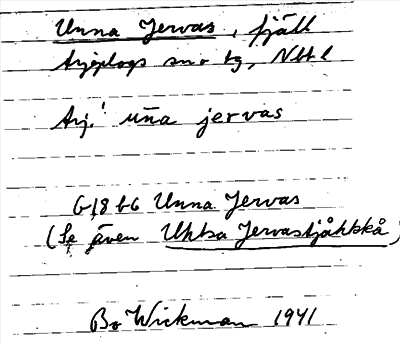 Unna Jervas, fjäll
Arjeplogs sn o tg, Nbt l
Arj.! uña jervas
G 18 b6 Unna Jervas
(Se även Uhtsa Jervastjåhkkå)
Bo Wickman 1941